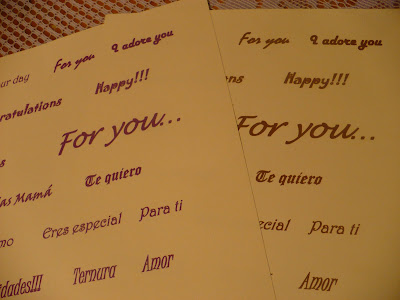 ur day For you I adore you
ratulations Happy!!!
For you...
s
Te quiero
as Mamá
mo Eres especial Para ti
idades!!! Ternura Amor
For you I adore you
ons Happy!!!
For you...
Te quiero
cial Para ti
Amor